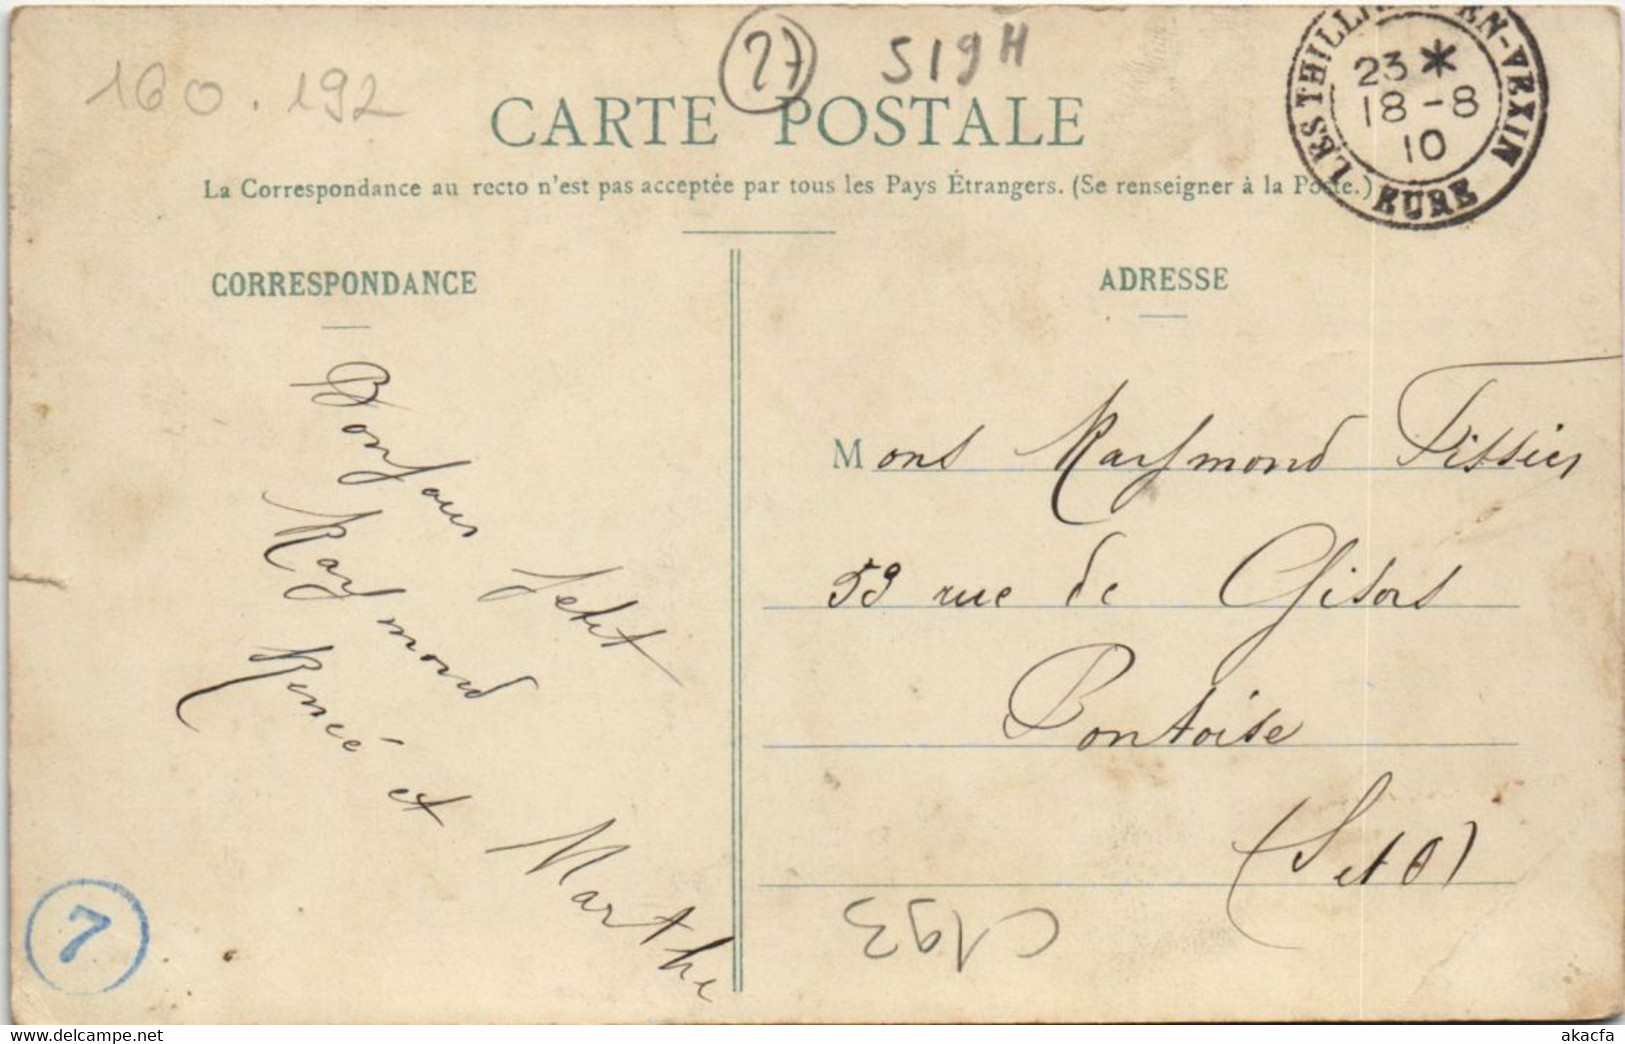 160.192
27
SIGH
CARTE POSTALE
La Correspondance au recto n'est pas acceptée par tous les Pays Étrangers. (Se renseigner à la Poste.)
LES THILLIERS-EN-VEXIN
23 *
18 - 8
10
EURE
CORRESPONDANCE
Bonjour petit
Raymond
Renée et Marthe
7
ADRESSE
Mons Raymond Tissier
59 rue de Gisors
Pontoise
(S et O)
C193
akacfa